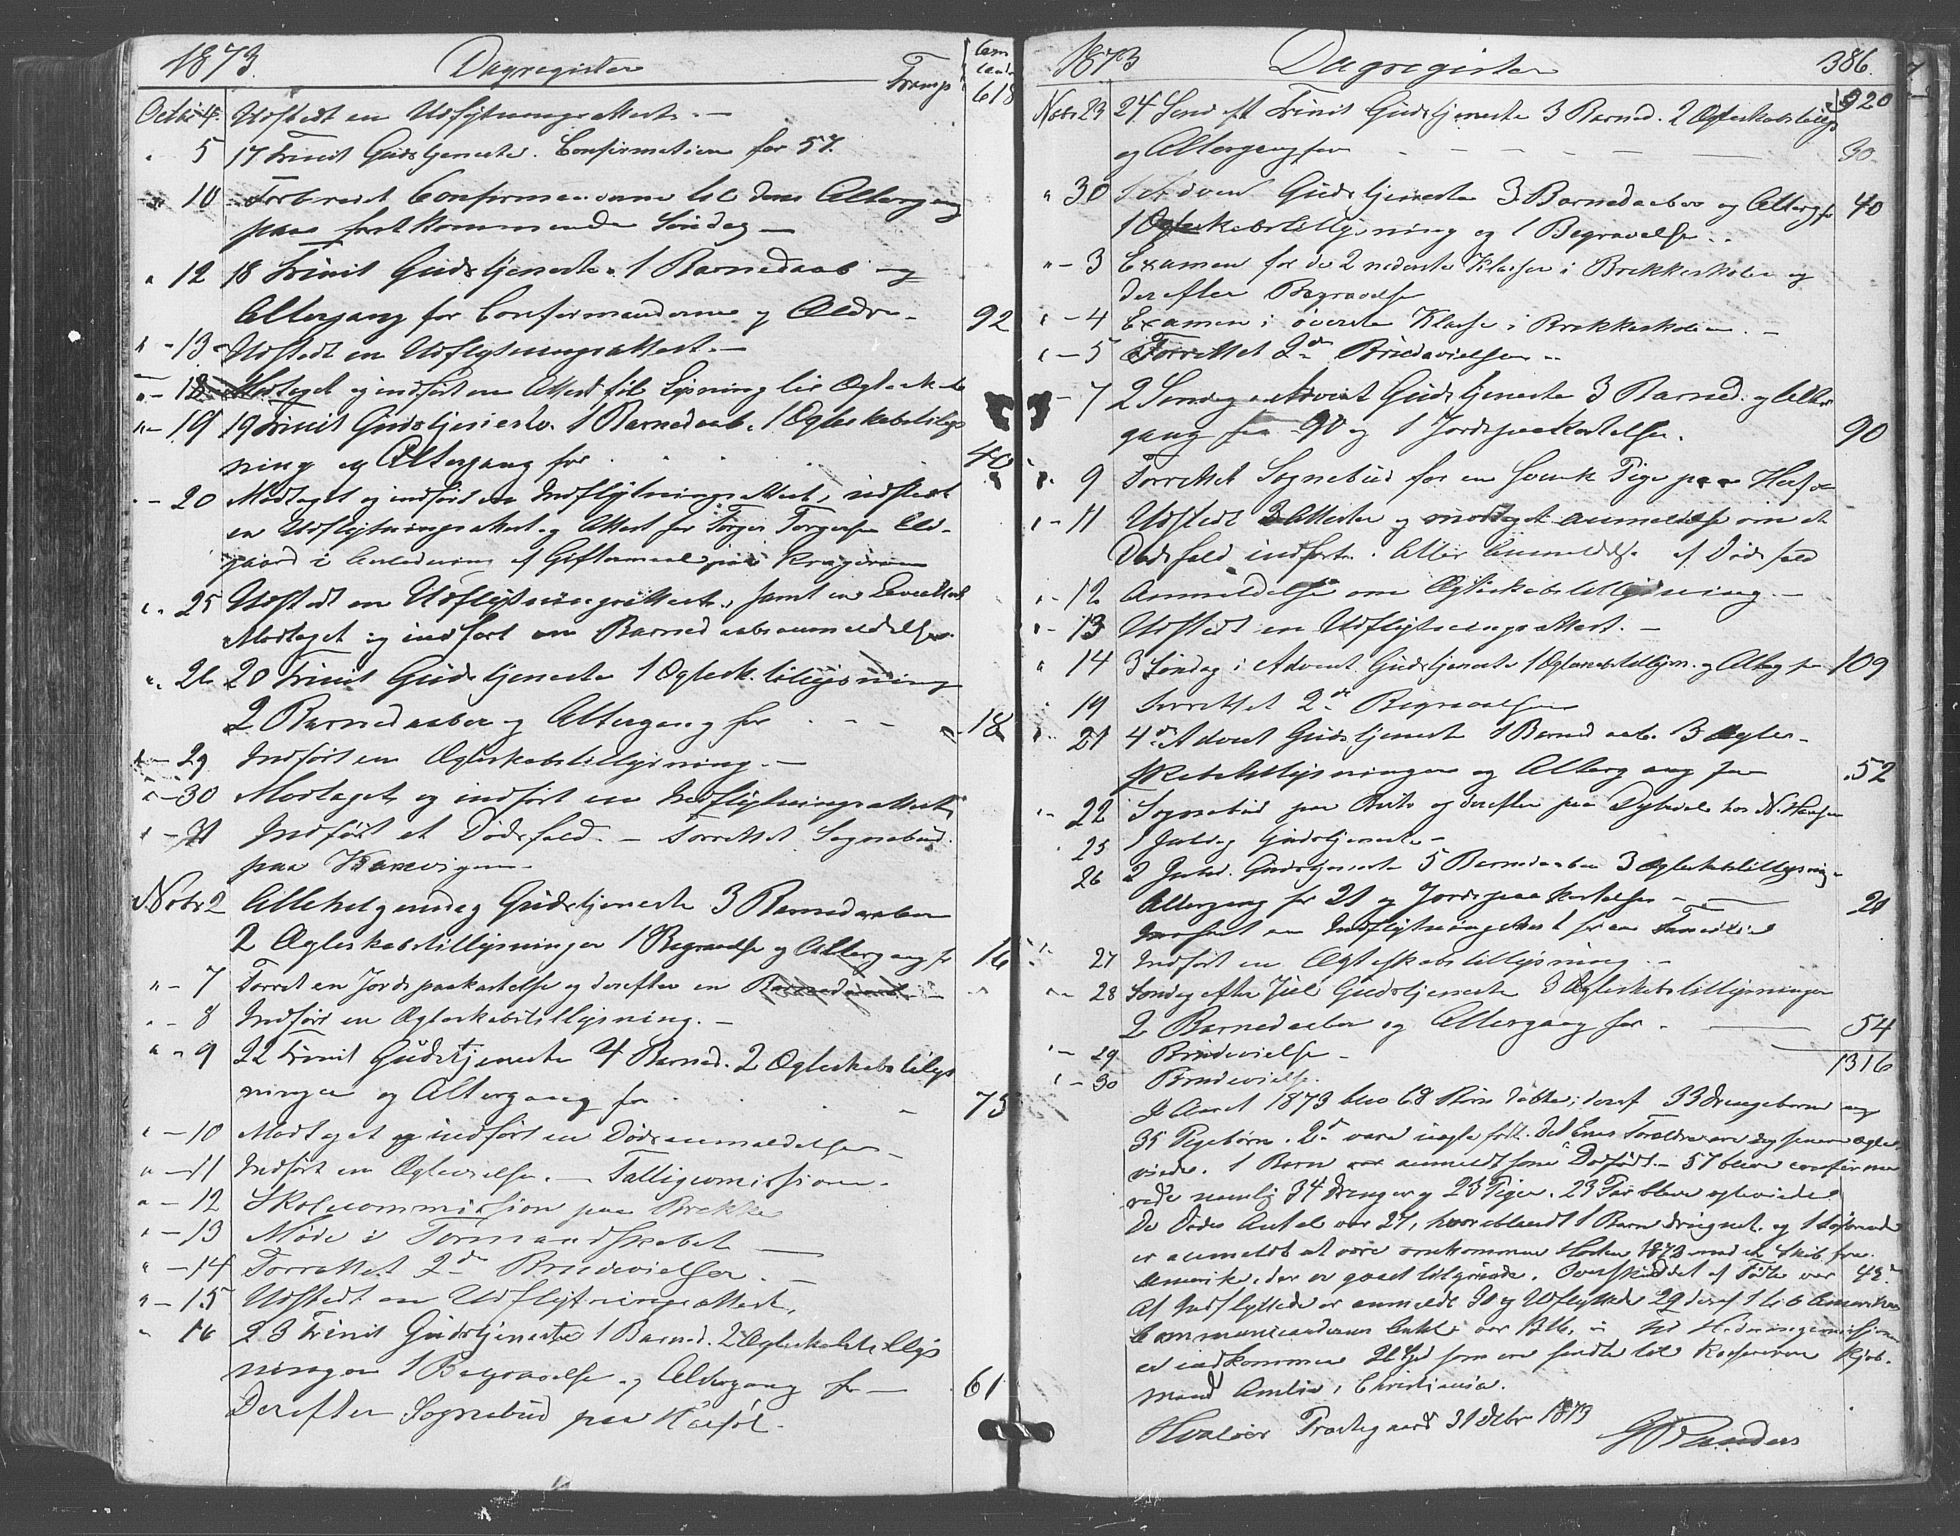 1873. Dagregister Transp Com cande 618
Octbr 4. Udstedt en Udflytningsattest. —
" 5 17 Trinit Gudstjeneste. Confirmation for 57.
" 10 Forberedt Confirmanderne til deres Altergang
paa førstkommende Søndag —
" 12 18 Trinit Gudstjeneste. 1 Barnedaab og
Altergang for Confirmanderne og Ældre — 92
" — 13 — Udstedt en Udflytningsattest. —
" — 18 Modtaget og indført en Attest til Lysning til Ægteskab
" — 19 19 Trinit Gudstjeneste. 1 Barnedaab. 1 Ægteskabstillys
ning og Altergang for . . . 40
" — 20 Modtaget og indført en Indflytningsattest, udstedt
en Udflytningsattest og Attest for Torger Torgersen
gaard i Anledning af Giftermaal paa Kragerøen
" 25 Udstedt en Udflytningsattest, samt en
Modtaget og indført en Barnedaabsanmeldelse.
" 26 20 Trinit Gudstjeneste 1 Ægtesk. tillysning
2 Barnedaaber og Altergang for . — — 18
" — 29 Indført en Ægteskabstillysning. —
" — 30 Modtaget og indført en Indflytningsattest
" — 31 Indført et Dødsfald. — Forrettet Sognebud
paa
Novbr 2 Allehelgensdag Gudstjeneste 3 Barnedaaber
2 Ægteskabstillysninger 1 Begravelse og Altergang fr 16
" — 7 Forret en Jordspaakastelse og derefter en Barnedaab —
" — 8 Indført en Ægteskabstillysning. —
" " 9 22 Trinit Gudstjeneste 4 Barned. 2 Ægteskabstillys
ninger og Altergang for . . — 75
" — 10 Modtaget og indført en Dødsanmeldelse —
" — 11 Indført en Ægtevielse. — Fattigcomission.
" — 12 Skolecommission paa Brekke
" — 13 Møde i Formandskabet —
" — 14 Forrettet 2de Brudevielser. —
" — 15 Udstedt en Udflytningsattest.
" 16 23 Trinit Gudstjeneste 1 Barned. 2 Ægteskabstillys
ninger 1 Begravelse og Altergang for — 61
Derefter Sognebud paa Herføl.
1873 Dagregister 386.
Novbr 23 24 Sønd eft Trinit Gudstjeneste 3 Barned. 2 Ægteskabstillys 920
og Altergang for — — — — — 30
" 30 1 S Advent Gudstjeneste 3 Barnedaaber og Alterg fr 40
1 Ægteskabstillysning og 1 Begravelse.
" — 3 Examen for de 2 nederste Klasser i Brekkeskolen og
derefter Begravelse
" — 4 Examen i øverste Klasse i Brekkeskolen. —
" — 5 Forrettet 2de Brudevielser.
— 7 2 Søndag i Advent Gudstjeneste 3 Barned. og Alter
gang for 90 og 1 Jordspaakastelse. 90
" 9 Forrettet Sognebud for en svensk Pige paa Herføl
" — 11 Udstedt 3 Attester og modtaget anmeldelse om et
Dødsfald indført. Atter Anmeldelse af Dødsfald
" — 12 Anmeldelse om Ægteskabstillysning. —
" — 13 Udstedt en Udflytningsattest. —
" 14 3 Søndag i Advent Gudstjeneste 1 Ægteskabstillysn. og Alterg for 109
19 Forrettet 2de Begravelser
" 21 4de Advent Gudstjeneste 1 Barnedaab. 3 Ægte-
skabstillysninger og Altergang for 52
" — 22 Sognebud paa og derefter paa hos N. Hansen
25 1 Juledag Gudstjeneste —
26 2 Juled. Gudstjeneste 5 Barnedaaber 3 Ægteskabstillysning
Altergang for 21 og Jordspaakastelse — — 21
Indført en Indflytningsattest for en Familie
27 Indført en Ægteskabstillysning. —
" — 28 Søndag efter Jul Gudstjeneste 3 Ægteskabstillysninger
2 Barnedaaber og Altergang for . — 54
" — 29 Brudevielse — 1316
" — 30 Brudevielse.
I Aaret 1873 blev 68 Børn døbte; deraf 33 drengebørn og
35 Pigebørn. 2de vare uægte født. det Enes Forældre ere dog senere ægte
viede. 1 Barn anmeldt som Dødfødt. — 57 bleve confirme
rede nemlig 34 drenge og 23 Piger. 23 Par bleve ægteviede
De Dødes Antal var 27, hvoriblandt 1 Barn druknet. og 1 Søfarende
er anmeldt at være omkommen Høsten 1872 med et Skib fra
Amerika, der er gaaet tilgrunde. Overskuddet af Fødte var 43.
Af Indflyttede er anmeldt 30 og Udflyttede 29 deraf 1 til Amerika
Communicanternes Antal var 1316. — Til Hedningemissionen
er indkommen 26 Spd som ere sendte til Kassereren Kjøb-
mand i Christiania.
Hvaløer Præstegaard 31 Decbr 1873
Randers